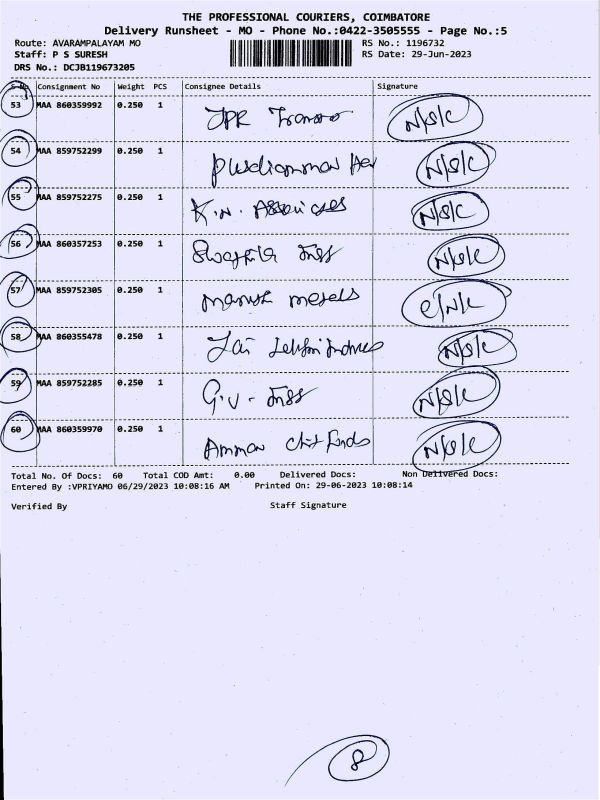 THE PROFESSIONAL COURIERS, COIMBATORE
Delivery Runsheet - MO - Phone No.:0422-3505555 - Page No.:5
Route: AVARAMPALAYAM MO RS No.: 1196732
Staff: P S SURESH RS Date: 29-Jun-2023
DRS No.: DCJB119673205
Consignment No Weight PCS Consignee Details Signature
53 MAA 860359992 0.250 1 JPR N/S/C
54 MAA 859752299 0.250 1 N/S/C
55 MAA 859752275 0.250 1 K.N. Associates N/S/C
56 MAA 860357253 0.250 1 N/S/C
57 MAA 859752305 0.250 1 Manish metals
58 MAA 860355478 0.250 1 Jai N/S/C
59 MAA 859752285 0.250 1 G.V - N/S/C
60 MAA 860359970 0.250 1 Amman chit funds N/S/C
Total No. Of Docs: 60 Total COD Amt: 0.00 Delivered Docs: Non Delivered Docs:
Entered By :VPRIYAMO 06/29/2023 10:08:16 AM Printed On: 29-06-2023 10:08:14
Verified By Staff Signature
8